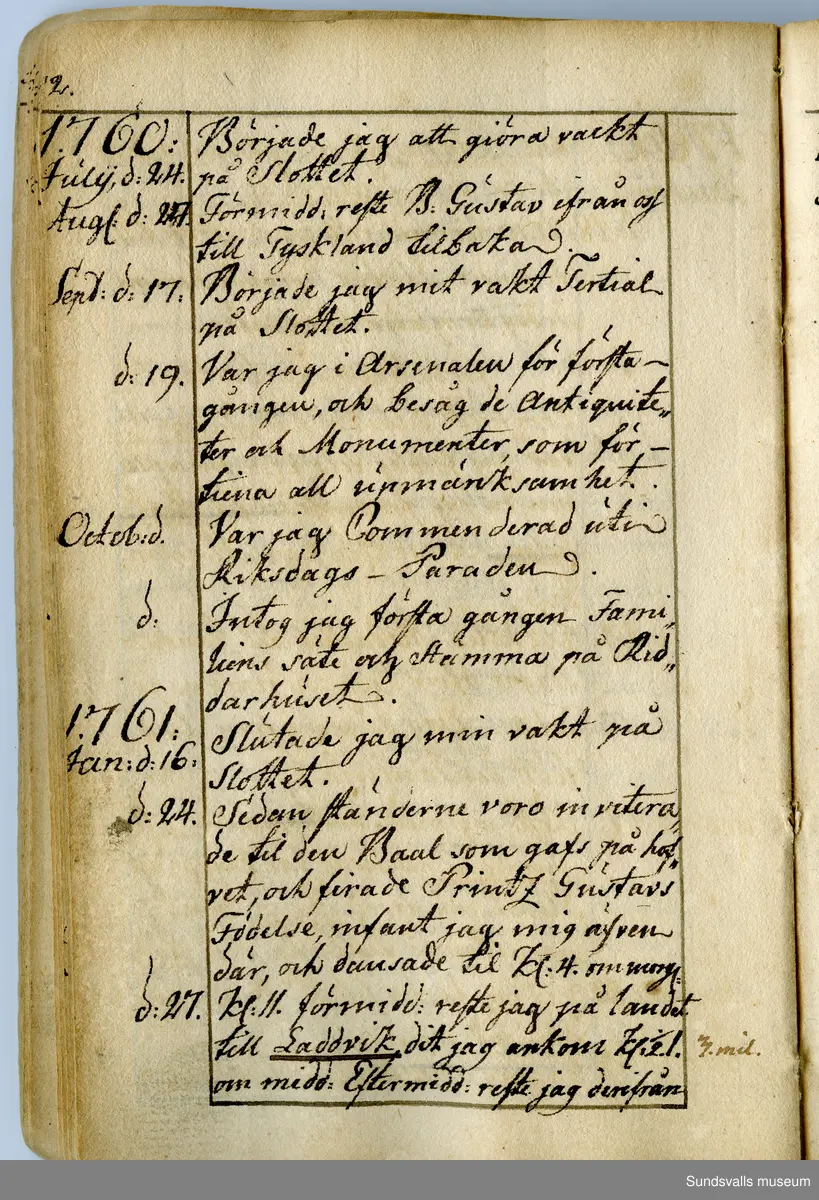 2.
1760: Började jag att giöra vackt
Julÿ, d: 24. på Slottet.
Augs: d: 27. Förmidd: reste B: Gustav ifrån oss
till Tyskland tilbaka.
Sept: d: 17: Började jag mit vakt Tertial
på Slottet.
d: 19. Var jag i Arsenalen för första-
gången, och besåg de Antiquite„
ter och Monumenter, som för-
tiena all upmärksamhet.
Octob: d. Var jag Commenderad uti
Riksdags-Paraden.
d: Intog jag första gången Fami„
liens säte och Stämma på Rid„
darhuset.
1761: Slutade jag min vakt på
Jan: d: 16: Slottet.
d: 24. Sedan ständerne voro invitera„
de til den Baal som gafs på hof„
vet, och firade Printz Gustavs
Födelse, infant jag mig äfven
där, och dansade til Kl: 4. om morg:
d: 27. Kl: 11. förmidd: reste jag på landet
till Laddvik, dit jag ankom Kl: ½1. 3/. mil.
om midd: Eftermidd: reste jag derifrån
Sundsvalls museum